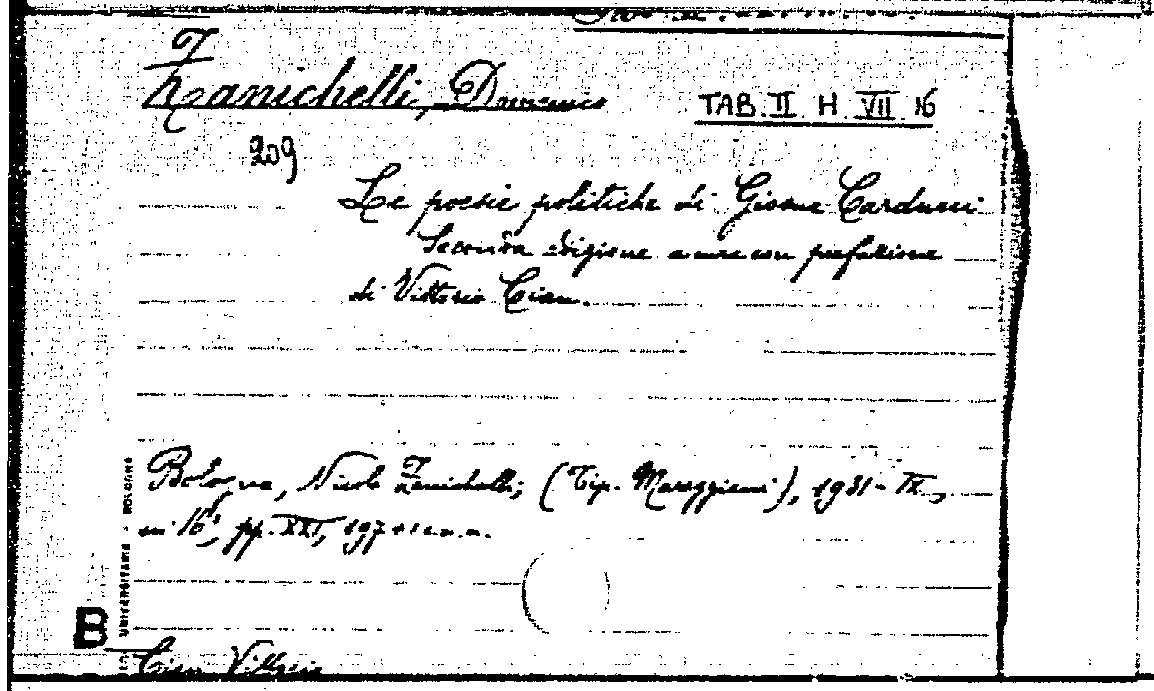 Zanichelli, Domenico
TAB. II H. VII 16
209
Le poesie politiche di Giosue Carducci
Seconda edizione a cura con prefazione
di Vittorio Cian.
Bologna, Nicola Zanichelli, (Tip. Mareggiani), 1931-IX,
in 16°, pp. XXI, 197
B
UNIVERSITARIA - BOLOGNA
Cian Vittorio